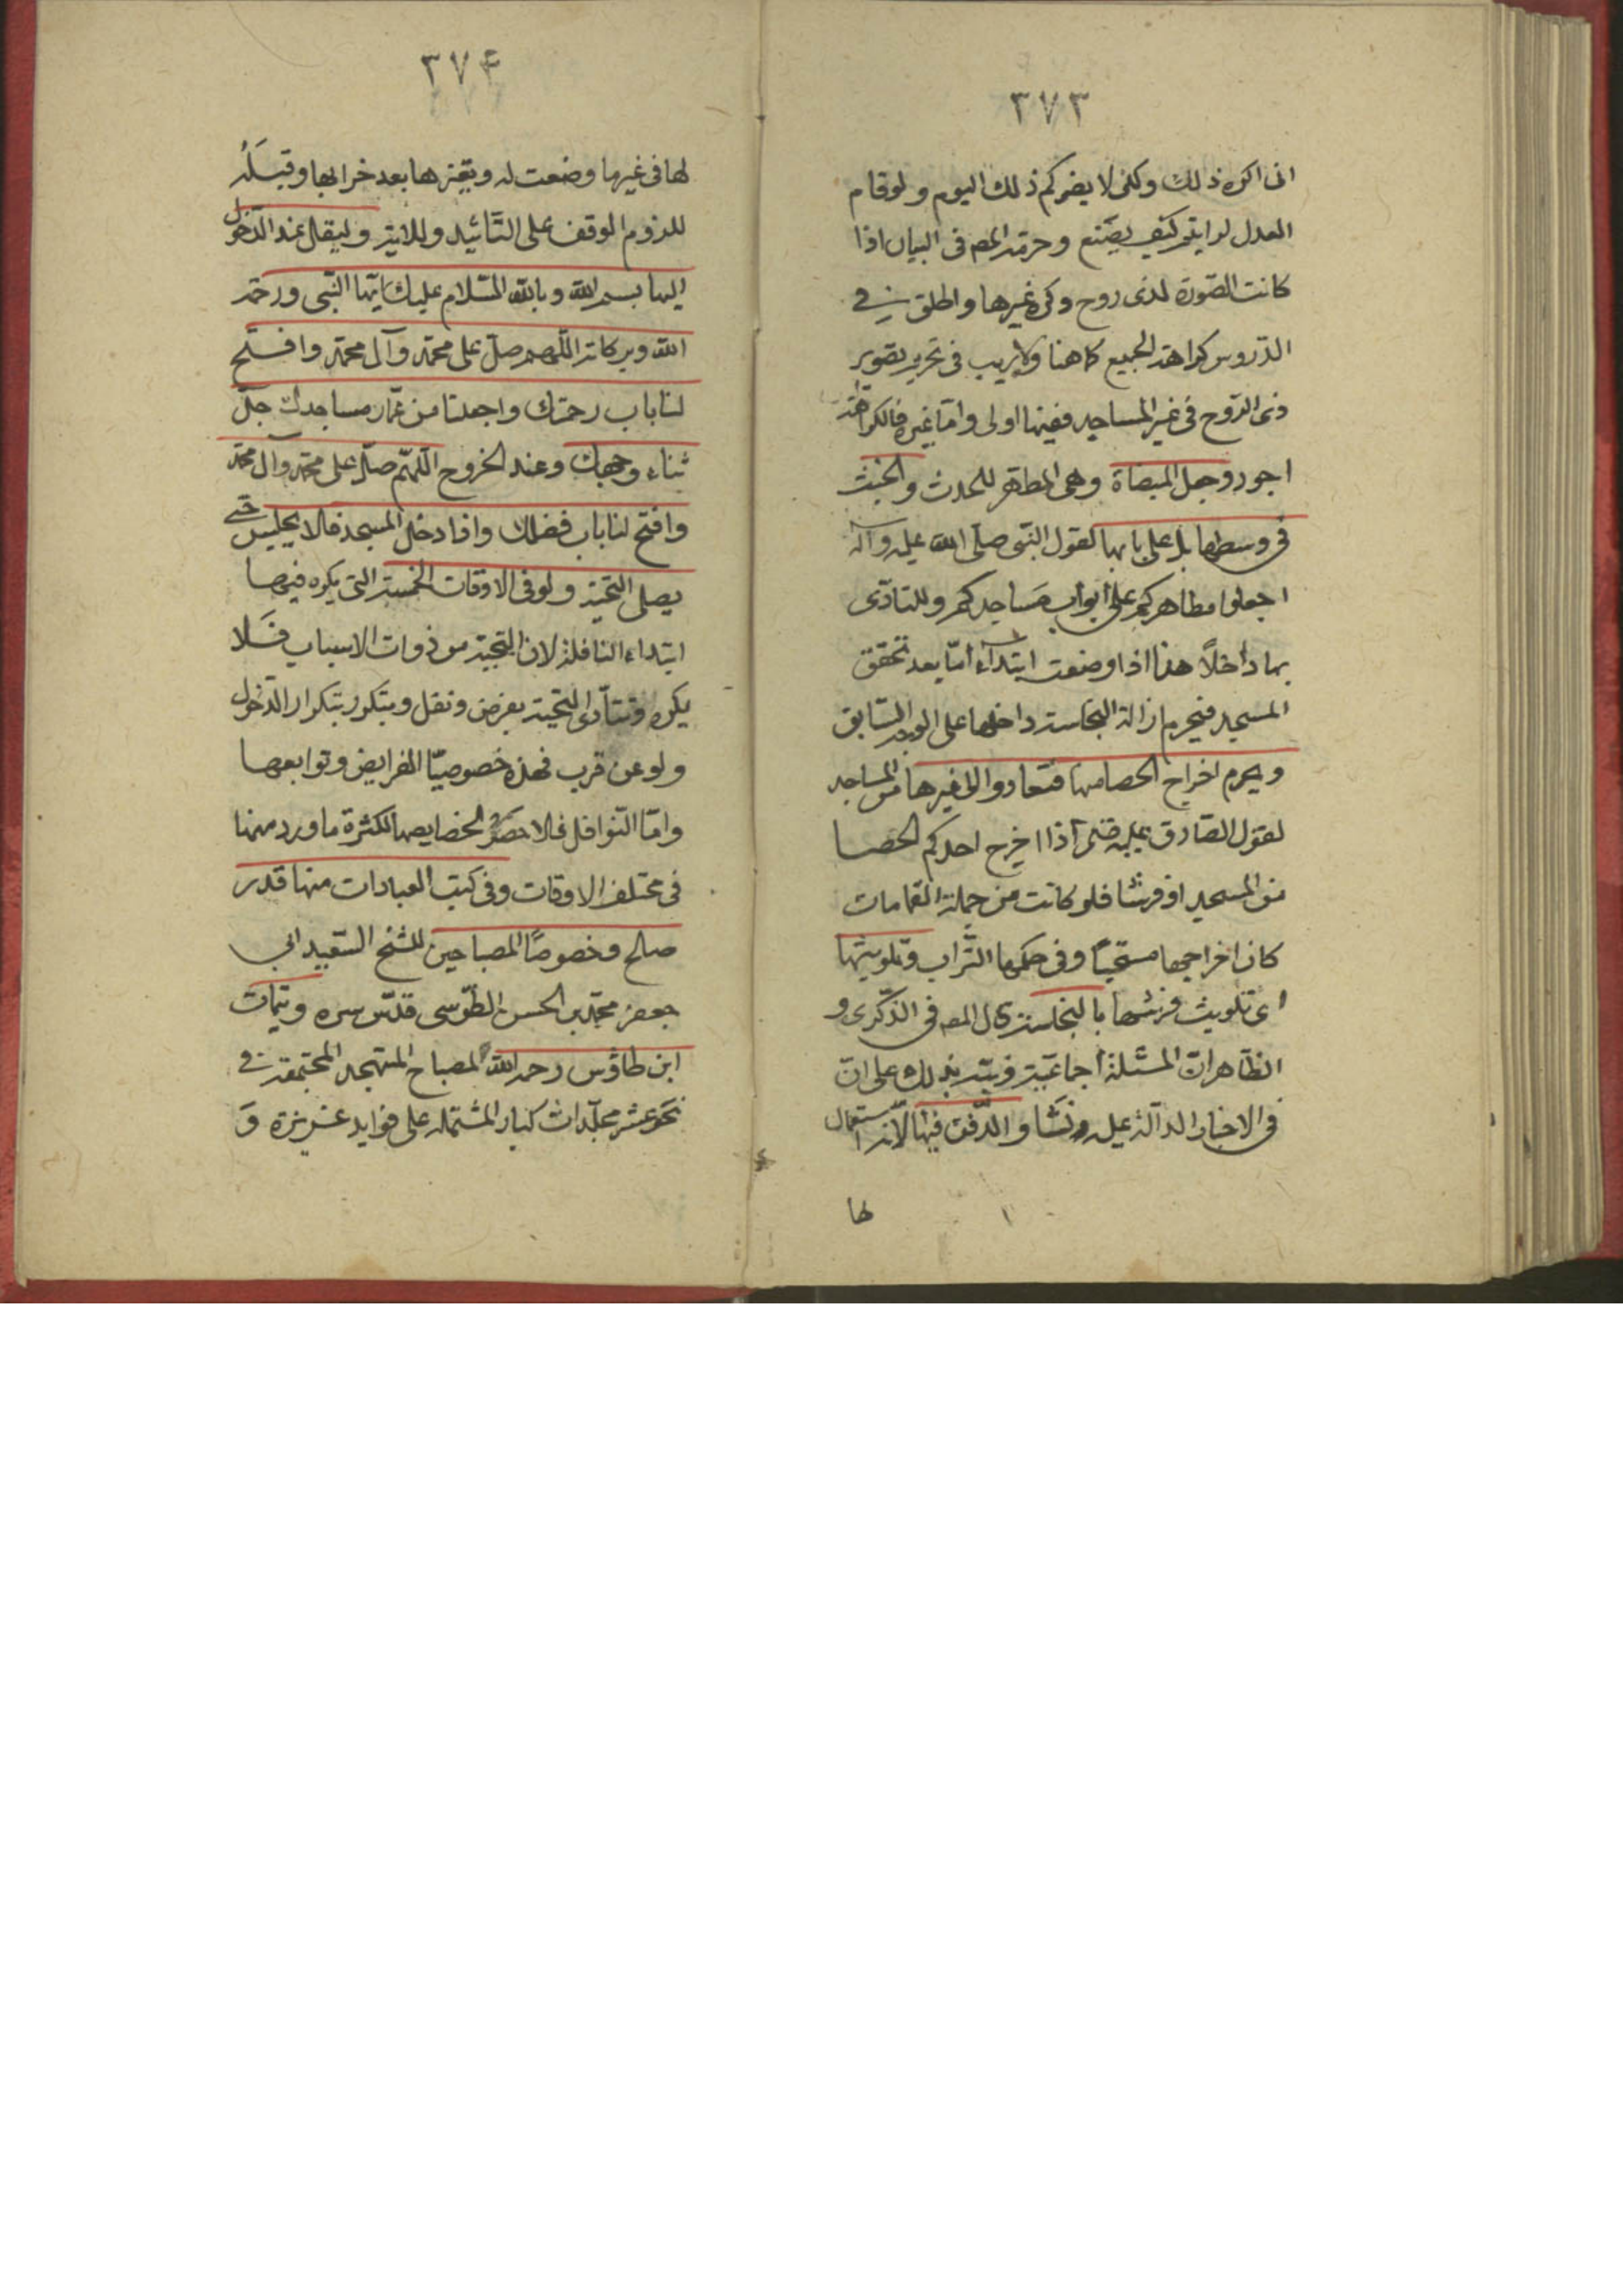 ٣٧٣
انى اكره ذلك ولكن لا يضركم ذلك اليوم ولو قام
العدل لرايتم كيف يصنع وحرمه المص فى البيان اذا
كانت الصّورة لذى روح وكره غيرها واطلق فى
الدّروس كراهة الجميع كما هنا ولا ريب فى تحريم تصوير
ذى الرّوح فى غير المساجد ففيها اولى وامّا غيره فالكراهة
اجود وجعل الميضاة وهى المطهرة للحدث والخبث
فى وسطها بل على بابها لقول النّبى صلّى الله عليه وآله
اجعلوا مطاهركم على ابواب مساجدكم وللتاذّى
بها داخلاً هذا اذا وضعت ابتداء امّا بعد تحقق
المسجد فيحرم ازالة النجاسة داخلها على الوجه السّابق
ويحرم اخراج الحصا منها فتعاد واالى غيرها من المساجد
لقول الصّادق عليه اذا اخرج احدكم الحصا
من المسجد او فرشا فلو كانت من جملة القمامات
كان اخراجها مستحبّا وفى حكمها التّراب وتلويثها
اى تلويث فرشها بالنجاسة قال المص فى الذّكرى و
الظّاهر انّ المسئلة اجماعيّة ونبّه بذلك على انّ
فى الاخبار الدآلة عليه والدّفن فيها لانّه استعمال
لها
٣٧۴
لها فى غير ما وضعت له وتغيرها بعد خرابها وقبله
للزوم الوقف على التّائيد وللاية وليقل عند الدّخول
اليها بسم الله وبالله السّلام عليك ايّها النّبى ورحمة
الله وبركاته اللّهم صلّ على محمّد وآل محمّد وافتح
لنا باب رحمتك واجعلنا من عمّار مساجدك جلّ
ثناء وجهك وعند الخروج اللّهمّ صلّ على محمّد وآل محمّد
وافتح لنا باب فضلك واذا دخل المسجد فلا يجلس حتى
يصلى التحيّة ولو فى الاوقات الخمسة التى يكره فيها
ابتداء النافلة لان التحية من ذوات الاسباب فلا
يكره وتتأدى التحية بفرض ونفل ويتكرر بتكرار الدّخول
ولو عن قرب فهذه خصوصيّا الفرايض وتوابعها
وامّا النّوافل فلا حصر لخصايصها لكثرة ما ورد منها
فى مختلف الاوقات وفى كتب العبادات منها قدر
صالح وخصوصًا المصباحين للشيخ السّعيد ابى
جعفر محمّد بن الحسن الطّوسى قدّس سره وتتمّات
ابن طاوُس رحمه الله لمصباح المتهجد المجتمعة فى
نحو عشر مجلّدات كبار المشتملة على فوايد غزيرة وَ